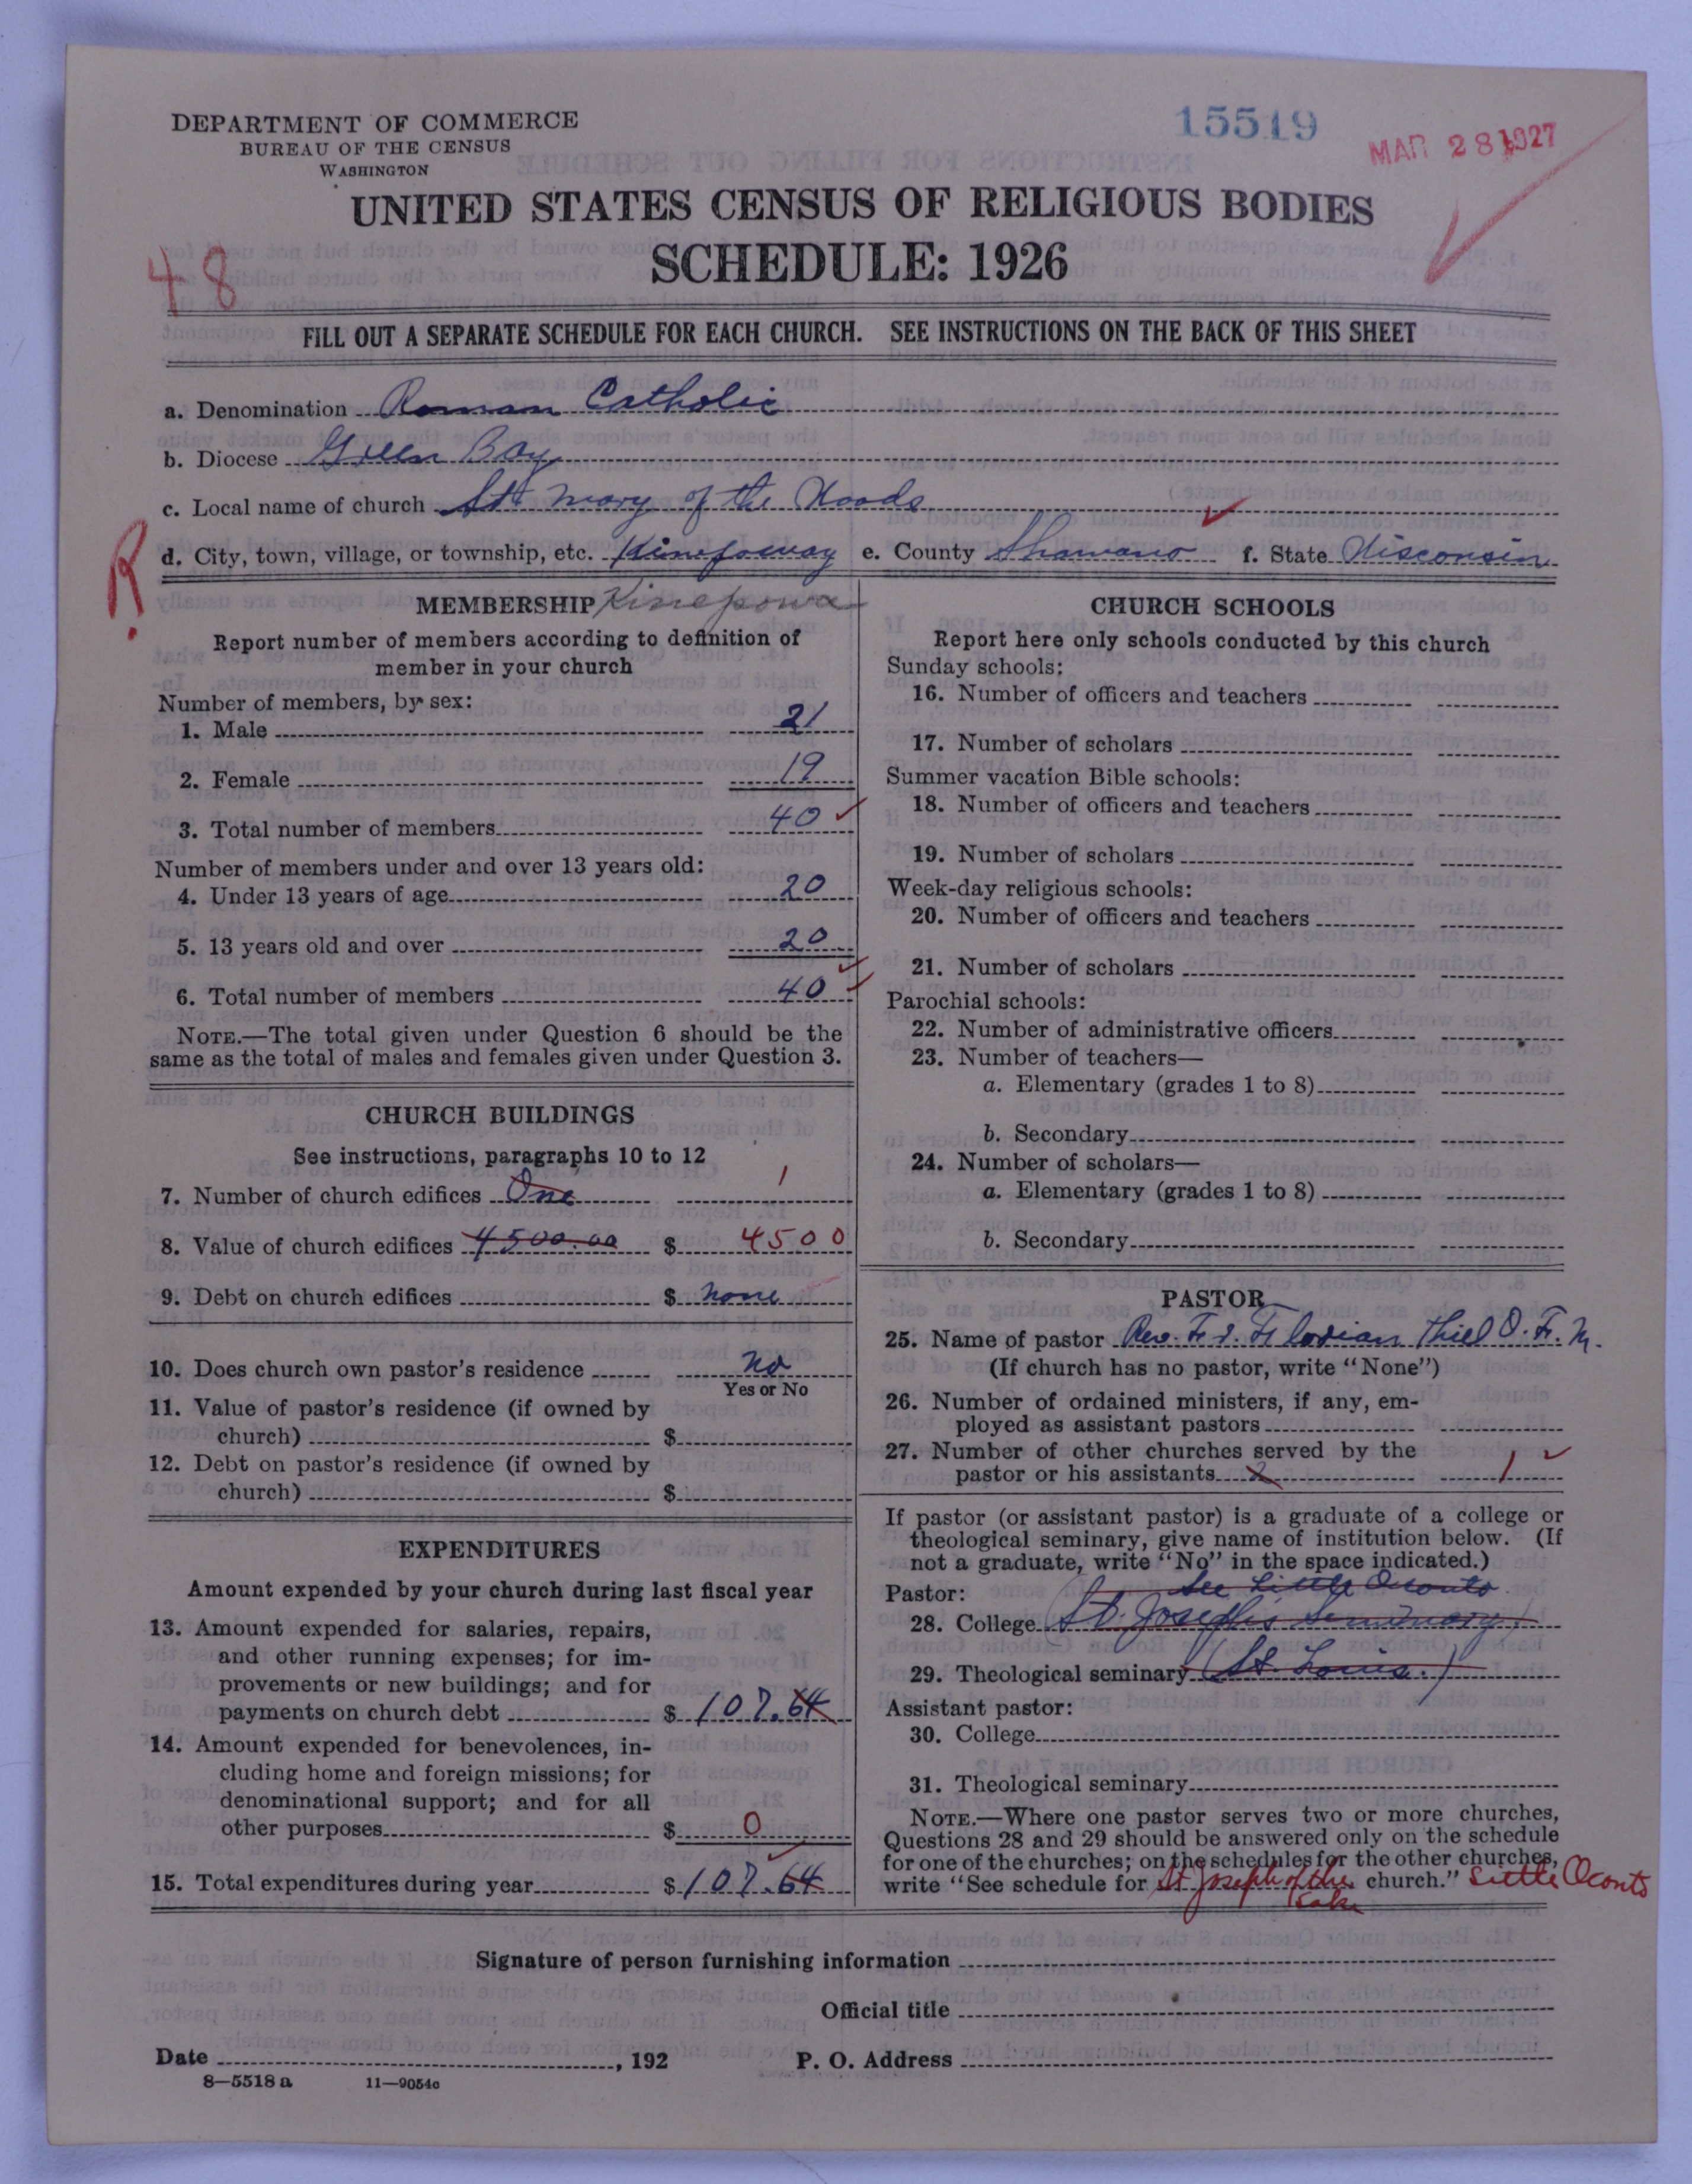 DEPARTMENT OF COMMERCE
BUREAU OF THE CENSUS
WASHINGTON
15519
MAR 28 1927
UNITED STATES CENSUS OF RELIGIOUS BODIES
SCHEDULE: 1926
48
FILL OUT A SEPARATE SCHEDULE FOR EACH CHURCH. SEE INSTRUCTIONS ON THE BACK OF THIS SHEET
a. Denomination Roman Catholic
b. Diocese Green Bay
c. Local name of church St. Mary of the Woods
R.
d. City, town, village, or township, etc. Kinepoway e. County Shawano f. State Wisconsin
MEMBERSHIP Kinepowa
Report number of members according to definition of
member in your church
Number of members, by sex:
1. Male 21
2. Female 19
3. Total number of members 40
Number of members under and over 13 years old:
4. Under 13 years of age 20
5. 13 years old and over 20
6. Total number of members 40
NOTE.—The total given under Question 6 should be the
same as the total of males and females given under Question 3.
CHURCH BUILDINGS
See instructions, paragraphs 10 to 12
7. Number of church edifices One 1
8. Value of church edifices 4500.00 $ 4500
9. Debt on church edifices $ none
10. Does church own pastor's residence no
Yes or No
11. Value of pastor's residence (if owned by
church) $
12. Debt on pastor's residence (if owned by
church) $
EXPENDITURES
Amount expended by your church during last fiscal year
13. Amount expended for salaries, repairs,
and other running expenses; for im-
provements or new buildings; and for
payments on church debt $ 107.64
14. Amount expended for benevolences, in-
cluding home and foreign missions; for
denominational support; and for all
other purposes $ 0
15. Total expenditures during year $ 107.64
CHURCH SCHOOLS
Report here only schools conducted by this church
Sunday schools:
16. Number of officers and teachers
17. Number of scholars
Summer vacation Bible schools:
18. Number of officers and teachers
19. Number of scholars
Week-day religious schools:
20. Number of officers and teachers
21. Number of scholars
Parochial schools:
22. Number of administrative officers
23. Number of teachers—
a. Elementary (grades 1 to 8)
b. Secondary
24. Number of scholars—
a. Elementary (grades 1 to 8)
b. Secondary
PASTOR
25. Name of pastor Rev. Fr. Florian Thiel O.F.M.
(If church has no pastor, write "None")
26. Number of ordained ministers, if any, em-
ployed as assistant pastors
27. Number of other churches served by the
pastor or his assistants 2 1
If pastor (or assistant pastor) is a graduate of a college or
theological seminary, give name of institution below. (If
not a graduate, write "No" in the space indicated.)
Pastor: See Little Oconto
28. College St. Joseph's Seminary
29. Theological seminary (St. Louis.)
Assistant pastor:
30. College
31. Theological seminary
NOTE.—Where one pastor serves two or more churches,
Questions 28 and 29 should be answered only on the schedule
for one of the churches; on the schedules for the other churches,
write "See schedule for St Joseph of the Lake church." Little Oconto
Signature of person furnishing information
Official title
Date , 192 P. O. Address
8—5518 a 11—9054c